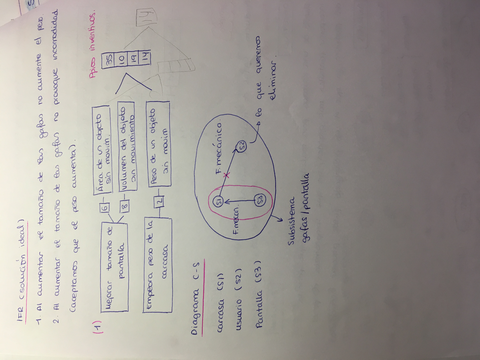 IFR (solución ideal)
1 Al aumentar el tamaño de las gafas no aumente el peso
2 Al aumentar el tamaño de las gafas no provoque incomodidad
(aceptamos que el peso aumenta)
(1)
Mejorar tamaño de
pantalla
6
Área de un objeto
sin movim
8
Volumen del objeto
sin movimiento
Empeora peso de la
carcasa
2
Peso de un objeto
sin movim
35
10
19
14
Ppios inventivos.
Diagrama C-S
carcasa (S1)
usuario (S2)
Pantalla (S3)
S1
S3
S2
F mecan
F mecánico
lo que queremos
eliminar
Subsistema
gafas/pantalla